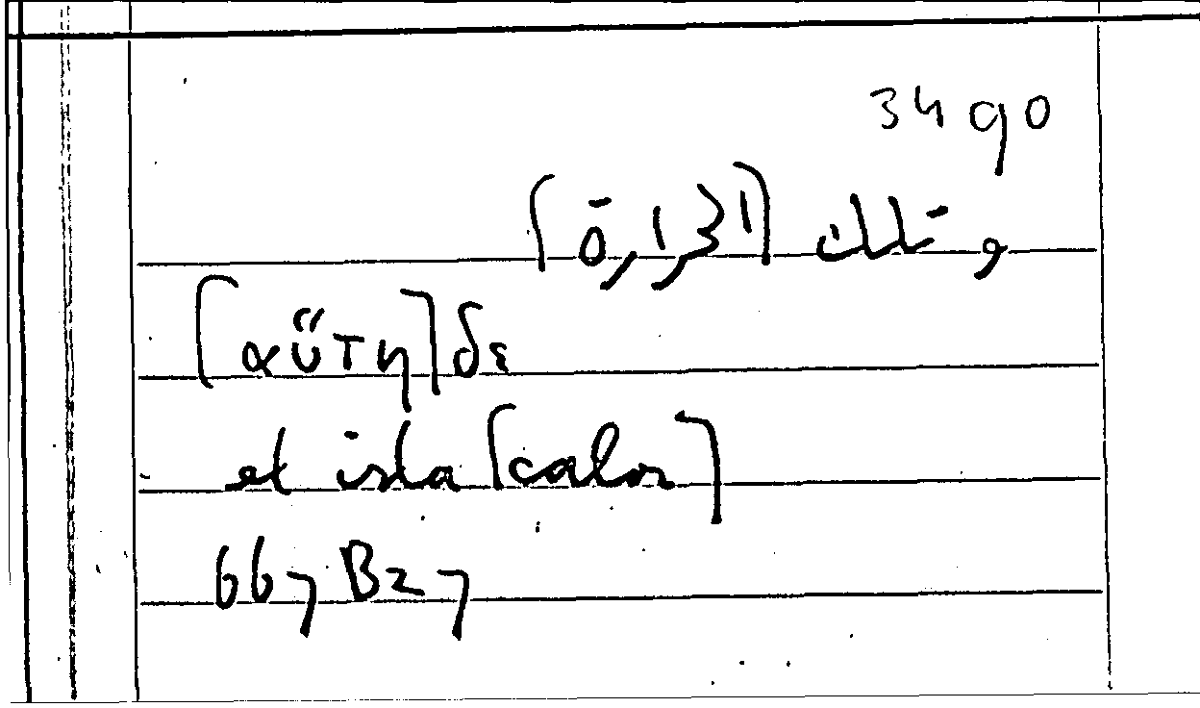 3490
وتلك [الحرارة]
[αὕτη] δε
et ista [calor]
667 B27